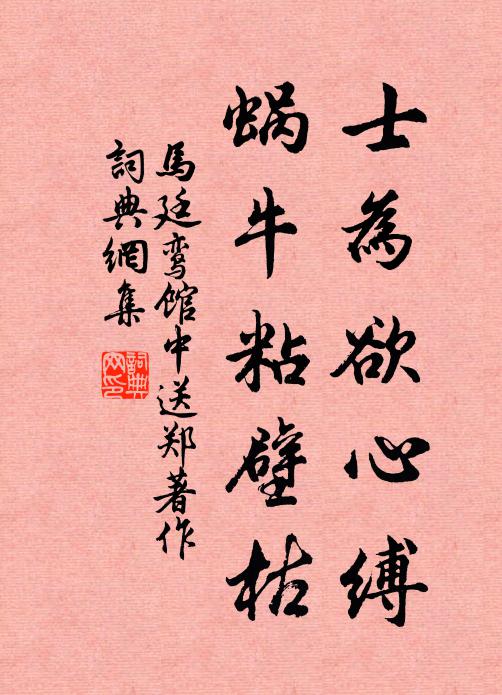 士為欲心縛
蝸牛粘壁枯
馬廷鸾館中送郑著作
詞典網集
詞典网印